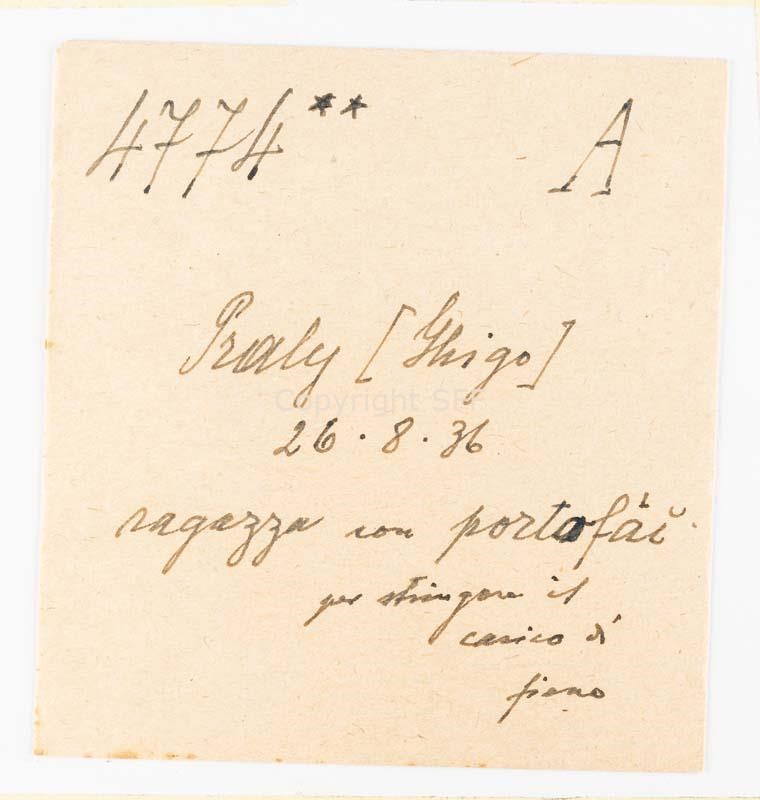 4774** A
Praly [Ghigo]
Copyright SEF
26.8.36
ragazza con portofá̄č
per stringere il
carico di
fieno